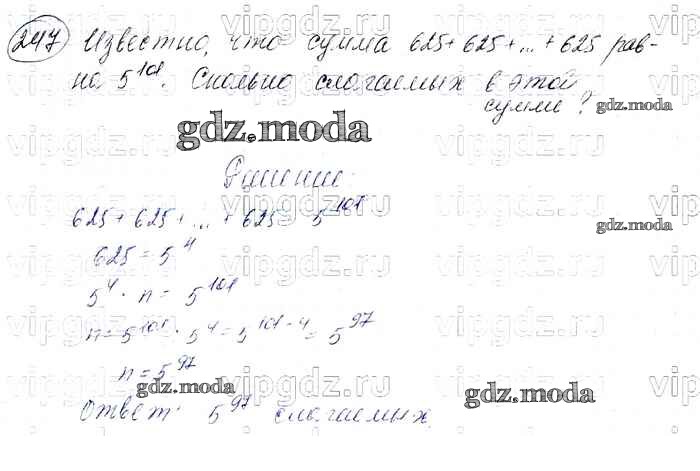 247 Известно, что сумма 625+625+...+625 рав-
на 5^101. Сколько слагаемых в этой
сумме?
gdz.moda
Решение:
625+625+...+625 5^101
625 = 5^4
5^4 · n = 5^101
n = 5^101 : 5^4 = 5^101-4 = 5^97
n = 5^97
Ответ: 5^97 слагаемых.
vipgdz.ru
gdz.moda